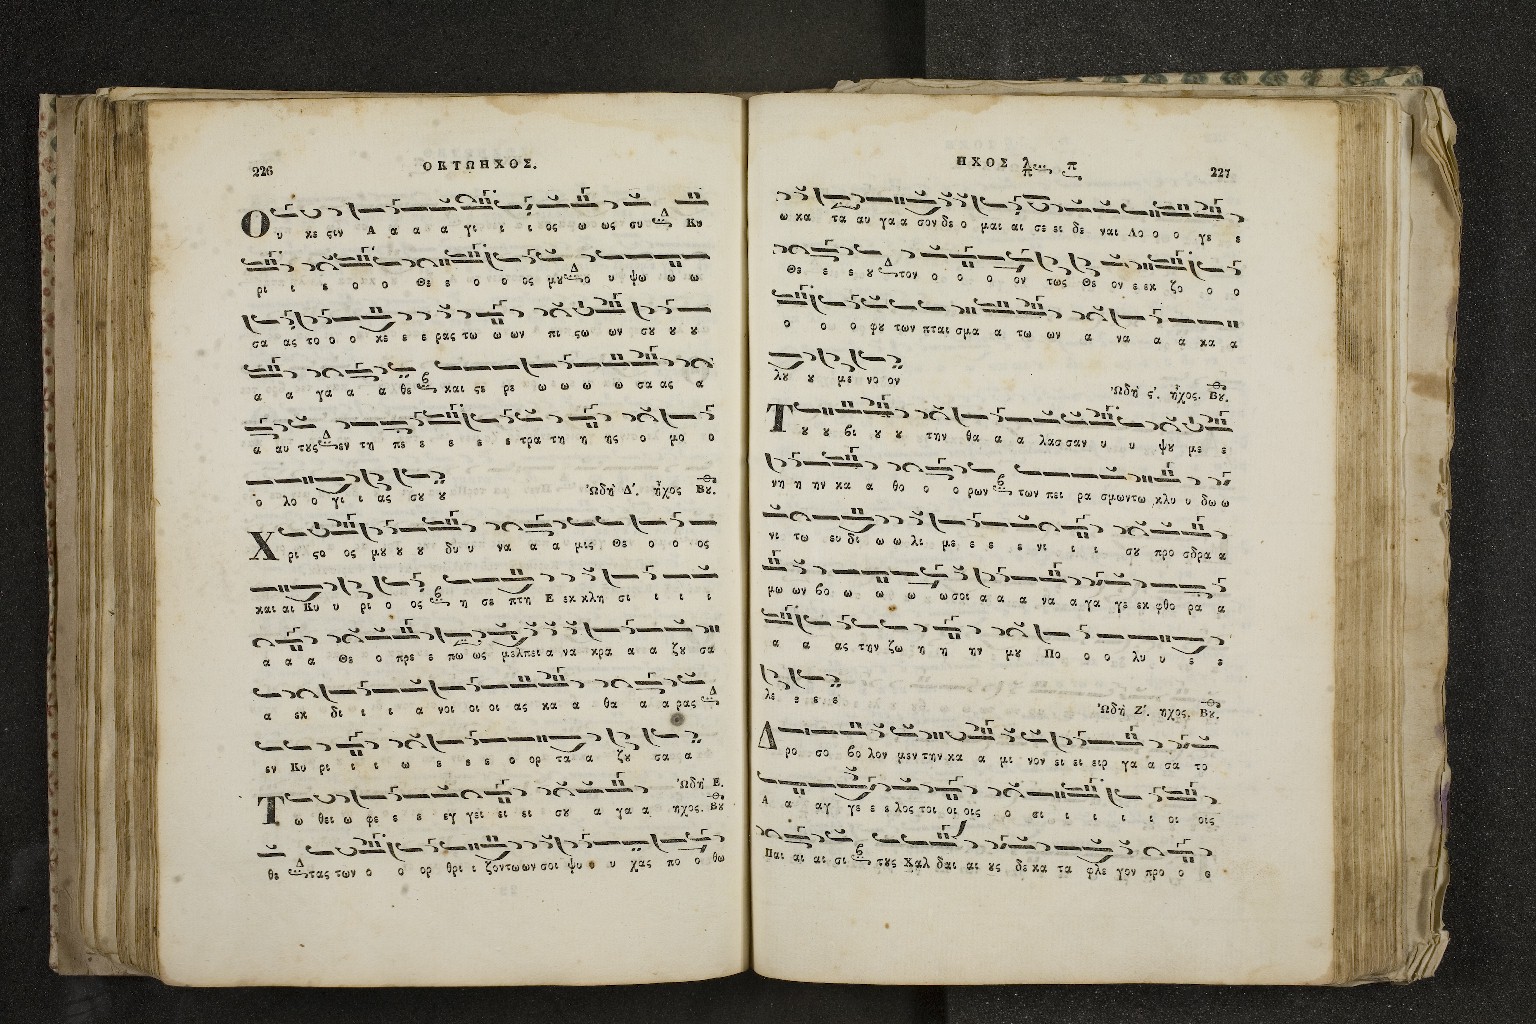 226
ΟΚΤΩΗΧΟΣ.
Ου κε ςιν Α α α α γι ι ι ος ω ως συ Κυ
ρι ι ε ο ο Θε ε ο ο ος μȣ ο υ ψω ω ω
σα ας το ο ο κε ε ε ρας τω ω ων πι ςω ων σȣ ȣ ȣ
α α γα α α θε και ςε ρε ω ω ω ω σα ας α
α αυ τȣς εν τη πε ε ε ε ε ε τρα τη η ης ο μο ο
ο λο ο γι ι ας σȣ ȣ
Ὠδὴ Δ'. ἦχος Βȣ.
Χρι ςο ος μȣ ȣ ȣ δυ υ να α α μις Θε ο ο ος
και αι Κυ υ ρι ο ος η σε πτη Ε εκ κλη σι ι ι ι
α α α Θε ο πρε ε πω ως μελ πει α να κρα α α ζȣ σα
α εκ δι ι ι α νοι οι οι ας κα α θα α α ρας
εν Κυ ρι ι ι ω ε ε ε ο ορ τα α ζȣ σα α
Ὠδὴ Ε.
Τω θει ω φε ε ε εγ γει ει ει σȣ α γα α ηχος. Βȣ
θε τας των ο ο ορ θρι ι ζον τω ων σοι ψυ υ υ χας πο ο θω
ΗΧΟΣ λ π π
227
ω κα τα αυ γα α σον δε ο μαι αι σε ει δε ναι Λο ο ο γε ε
Θε ε ε ȣ τον ο ο ο ον τως Θε ον ε εκ ζο ο ο
ο ο ο φȣ των πται σμα α τω ων α να α α κα α
λȣ ȣ με νο ον
Ὠδὴ ς'. ἦχος. Βȣ.
Τȣ ȣ βι ȣ ȣ την θα α α λασ σαν υ υ ψȣ με ε
νη η ην κα α θο ο ο ρων των πει ρα σμων τω κλυ υ δω ω
νι τω ευ δι ω ω λι με ε ε ε νι ι ι σȣ προ σδρα α
μω ων βο ω ω ω ω σοι α α α να α γα γε εκ φθο ρα α
α α ας την ζω η η ην μȣ Πο ο ο λυ υ ε ε
λε ε ε ε
Ὠδὴ Ζ'. ηχος. Βȣ.
Δρο σο βο λον μεν την κα α μι νον ει ει ειρ γα α σα το
Α α αγ γε ε ε λος τοι οι οις ο σι ι ι ι ι οι οις
Παι αι αι σι τȣς Χαλ δαι αι ȣς δε κα τα φλε γον προ ο ο